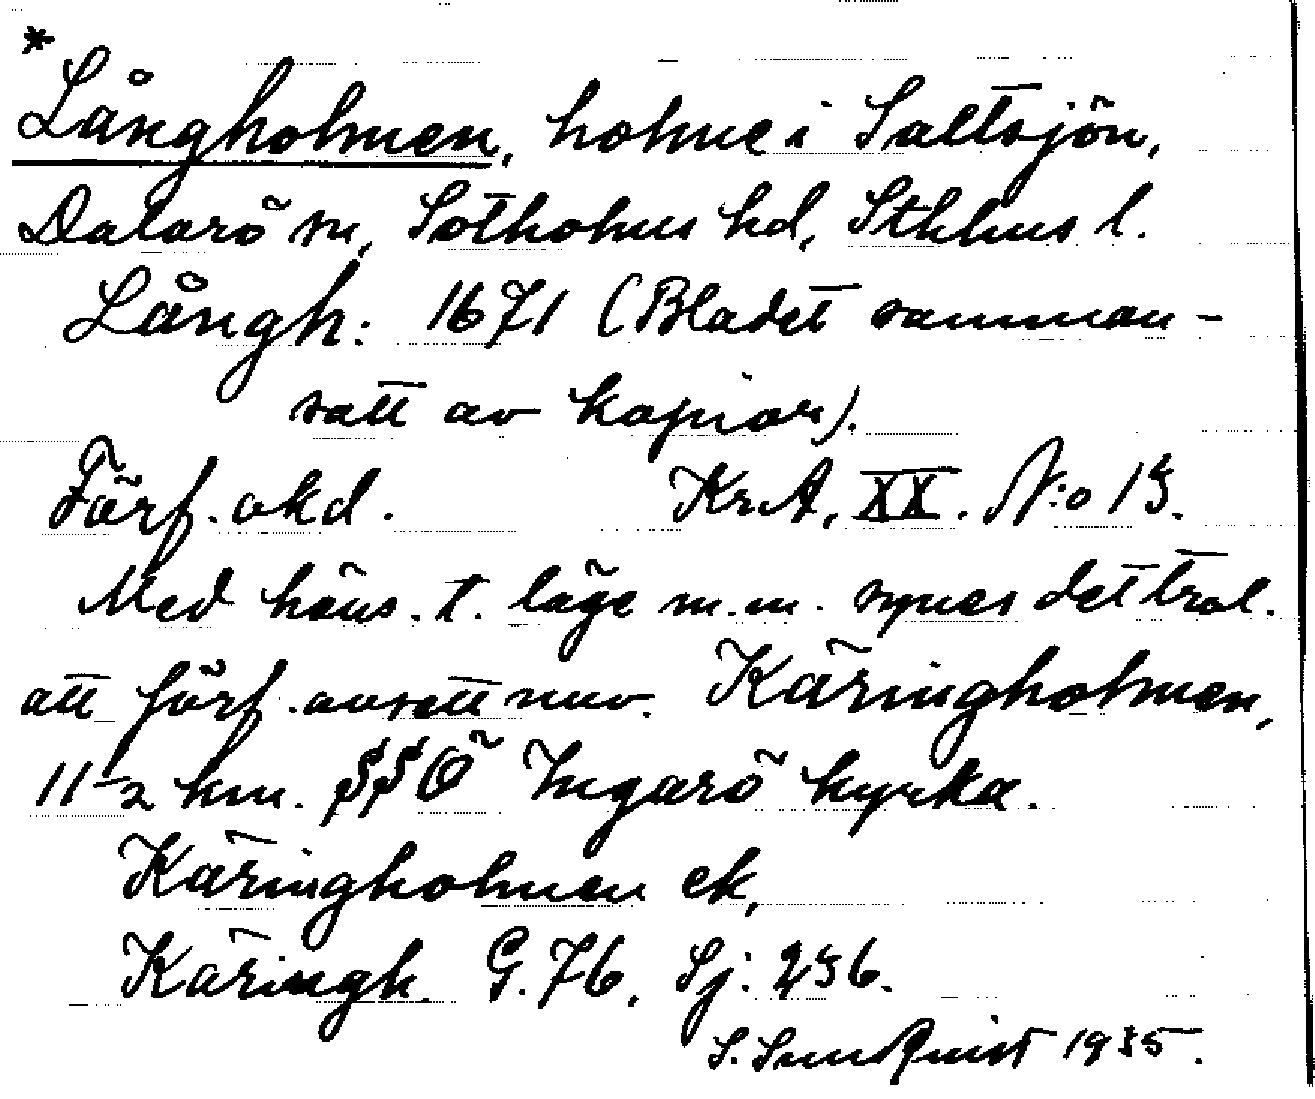 *
Långholmen, holme i Saltsjön,
Dalarö sn, Sotholms hd, Sthlms l.
Långh: 1671 (Bladet samman-
satt av kopior).
Förf. okd. Kr.A, XX. N:o 13.
Med häns. t. läge m.m. synes det trol.
att förf. avsett nuv. Käringholmen,
11-2 km. SSÖ Ingarö kyrka.
Käringholmen ek,
Käringh. G. 76, Sj: 236.
S. Sundquist 1935.